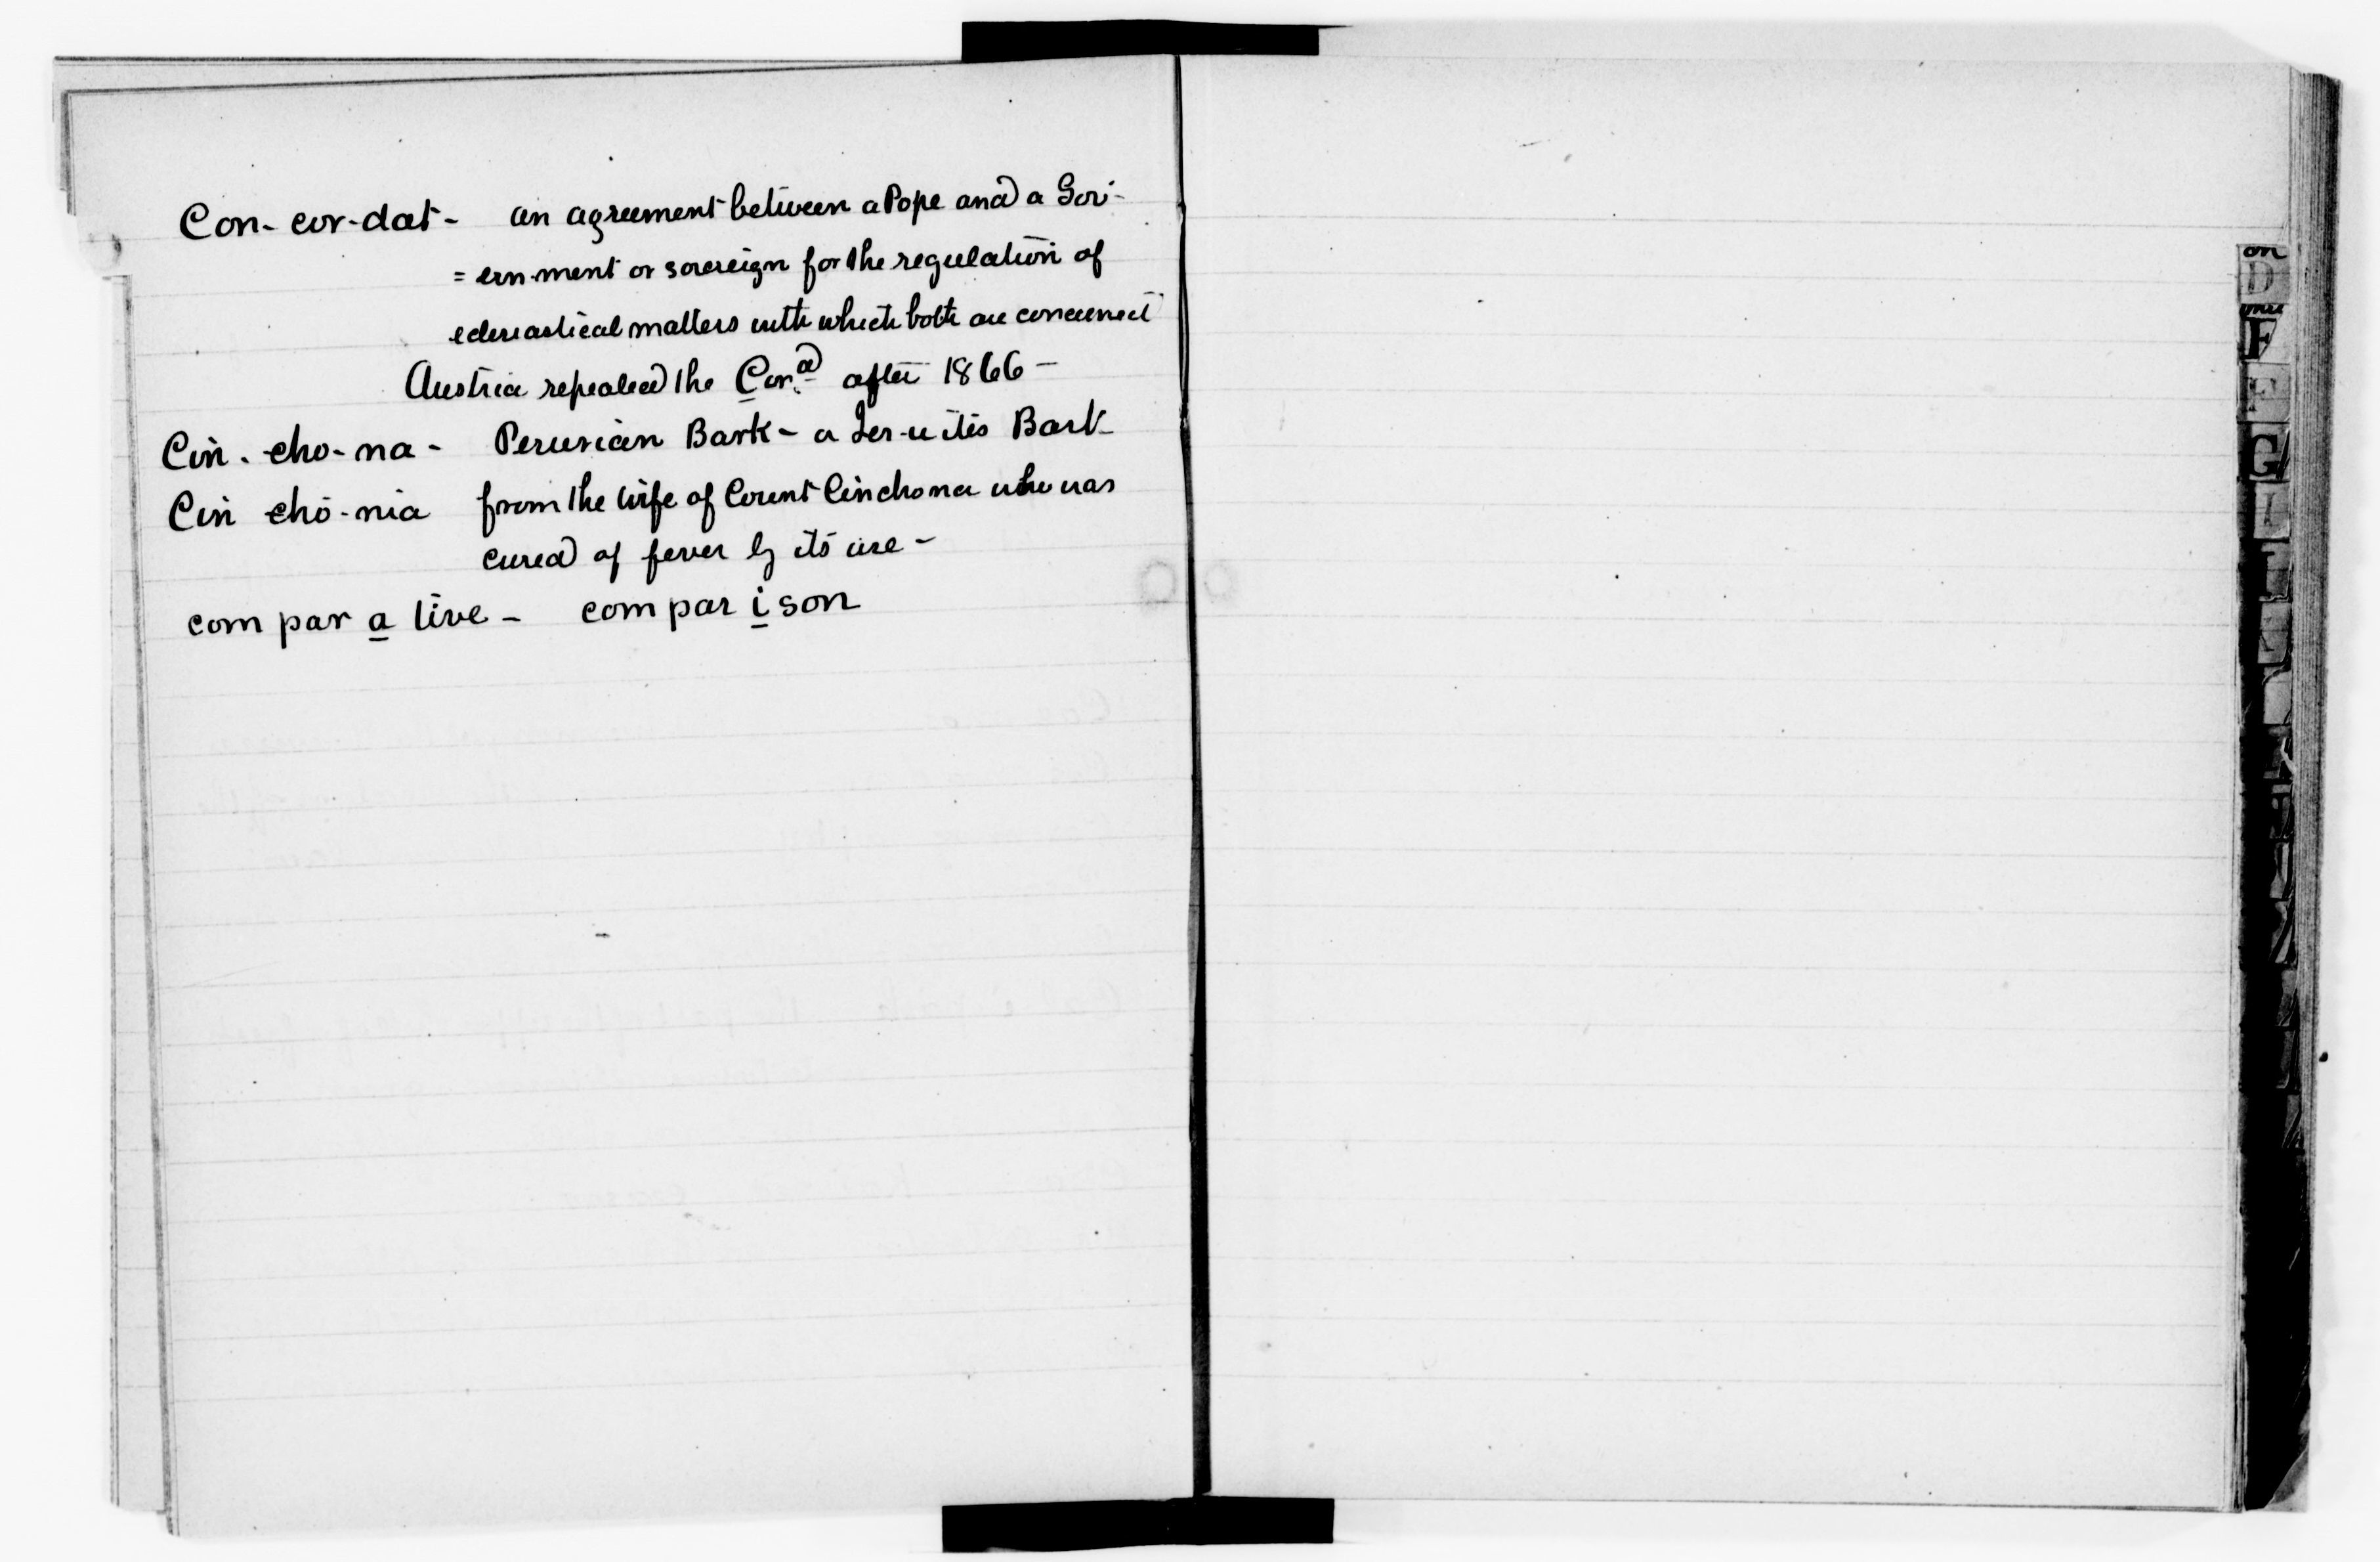 Con-cor-dat- an agreement between a Pope and a Gov-
=ern-ment or sovereign for the regulation of
eclesiastical matters with which both are concerned
Austria repealed the Con.d after 1866-
Cin-cho-na- Peruvian Bark- a Jes-u-itis Bark
Cin cho-nia from the wife of Count Cinchona who was
cured of fever by its use-
com par a tive- com par i son
on
D
F
F
G
I